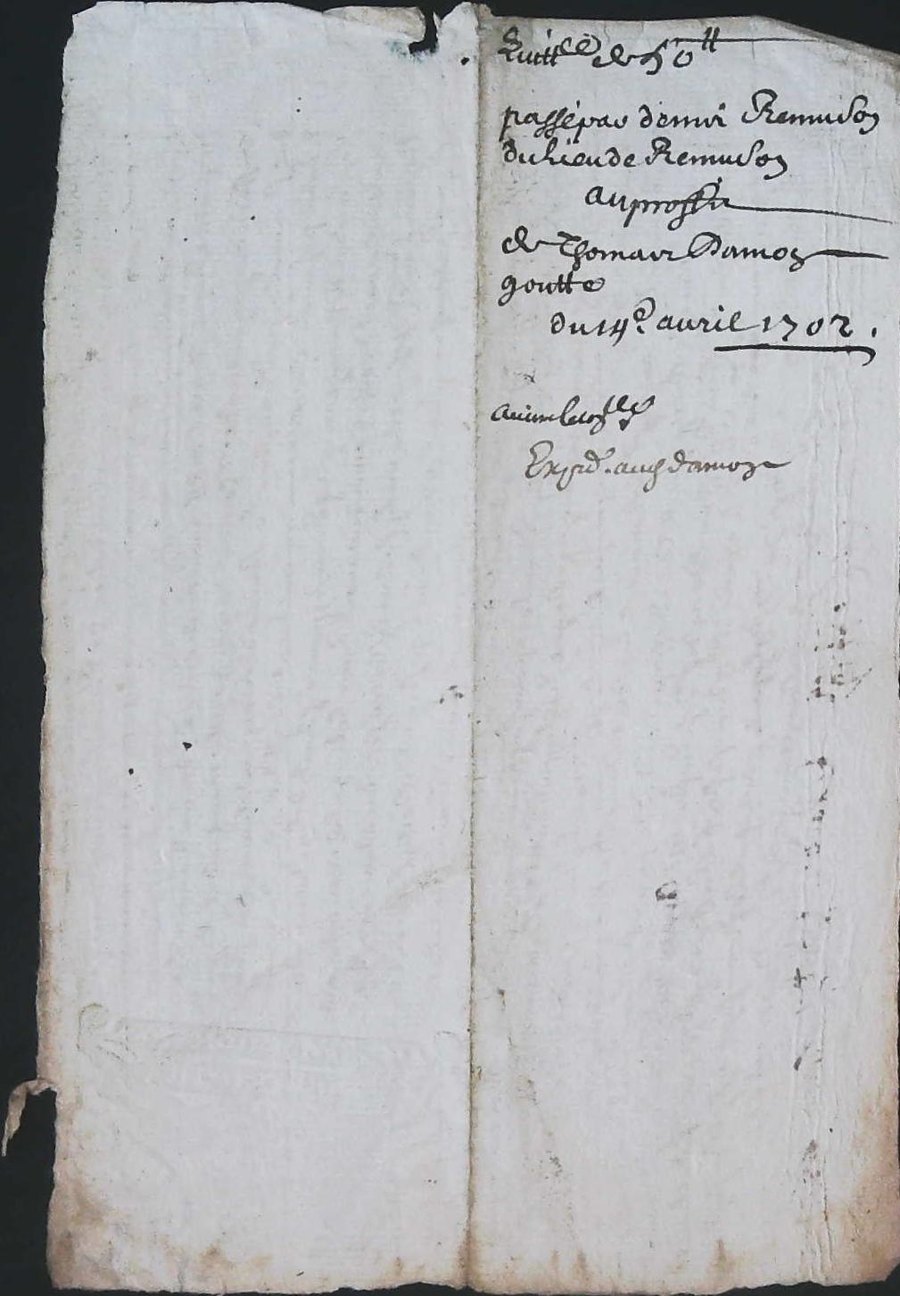 Quitt.ce de 50 ₶
passé par demoi Remuson
du lieu de Remuson
au proffit
de Thomas Damon
goutte
du 14e. avril 1702.
Exped. aud damon